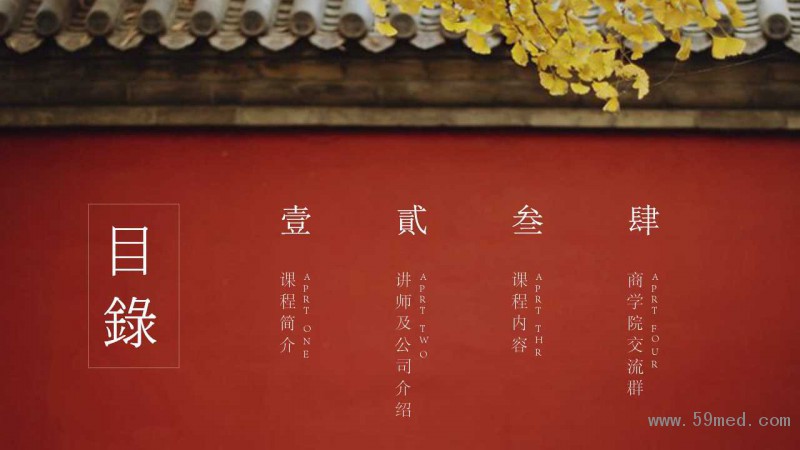 目錄
壹
课程简介
APRT ONE
貳
讲师及公司介绍
APRT TWO
叁
课程内容
APRT THR
肆
商学院交流群
APRT FOUR
www.59med.com